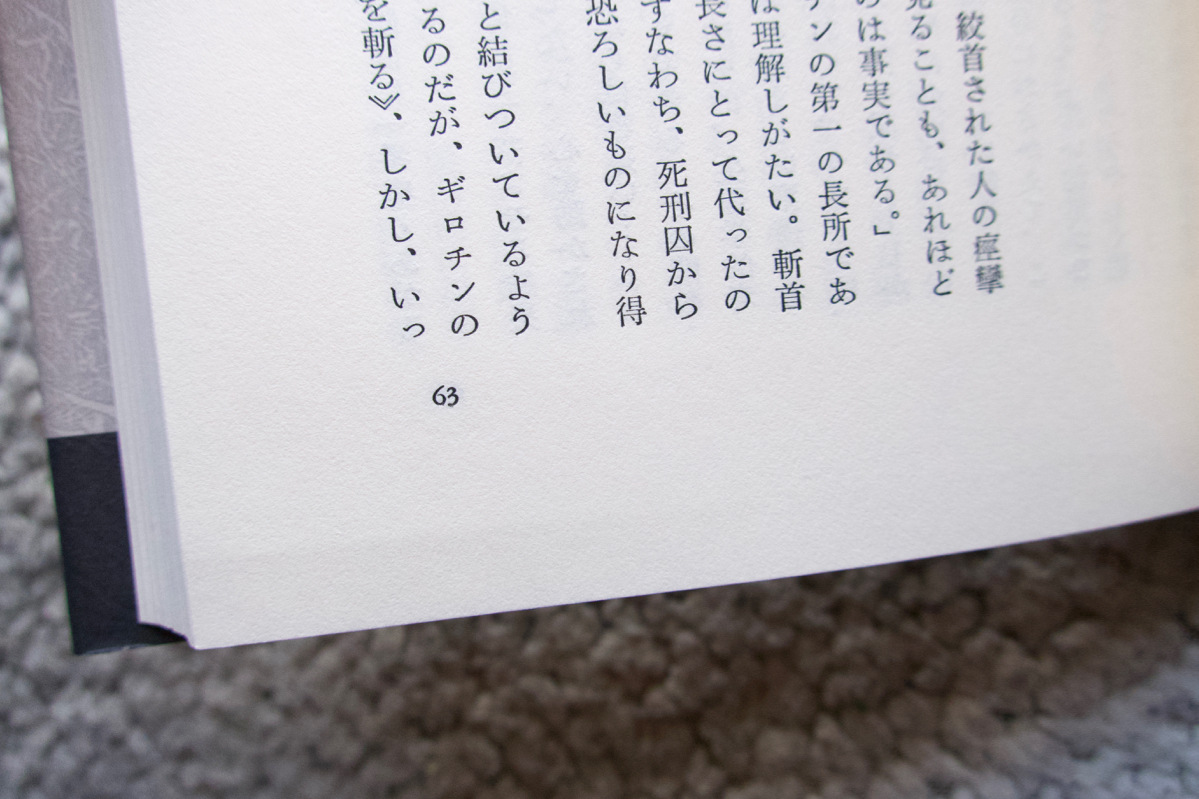 絞首された人の痙攣
ることも、あれほど
のは事実である。」
ンの第一の長所であ
は理解しがたい。斬首
長さにとって代ったの
すなわち、死刑囚から
恐ろしいものになり得
と結びついているよう
るのだが、ギロチンの
を斬る》、しかし、いっ
63